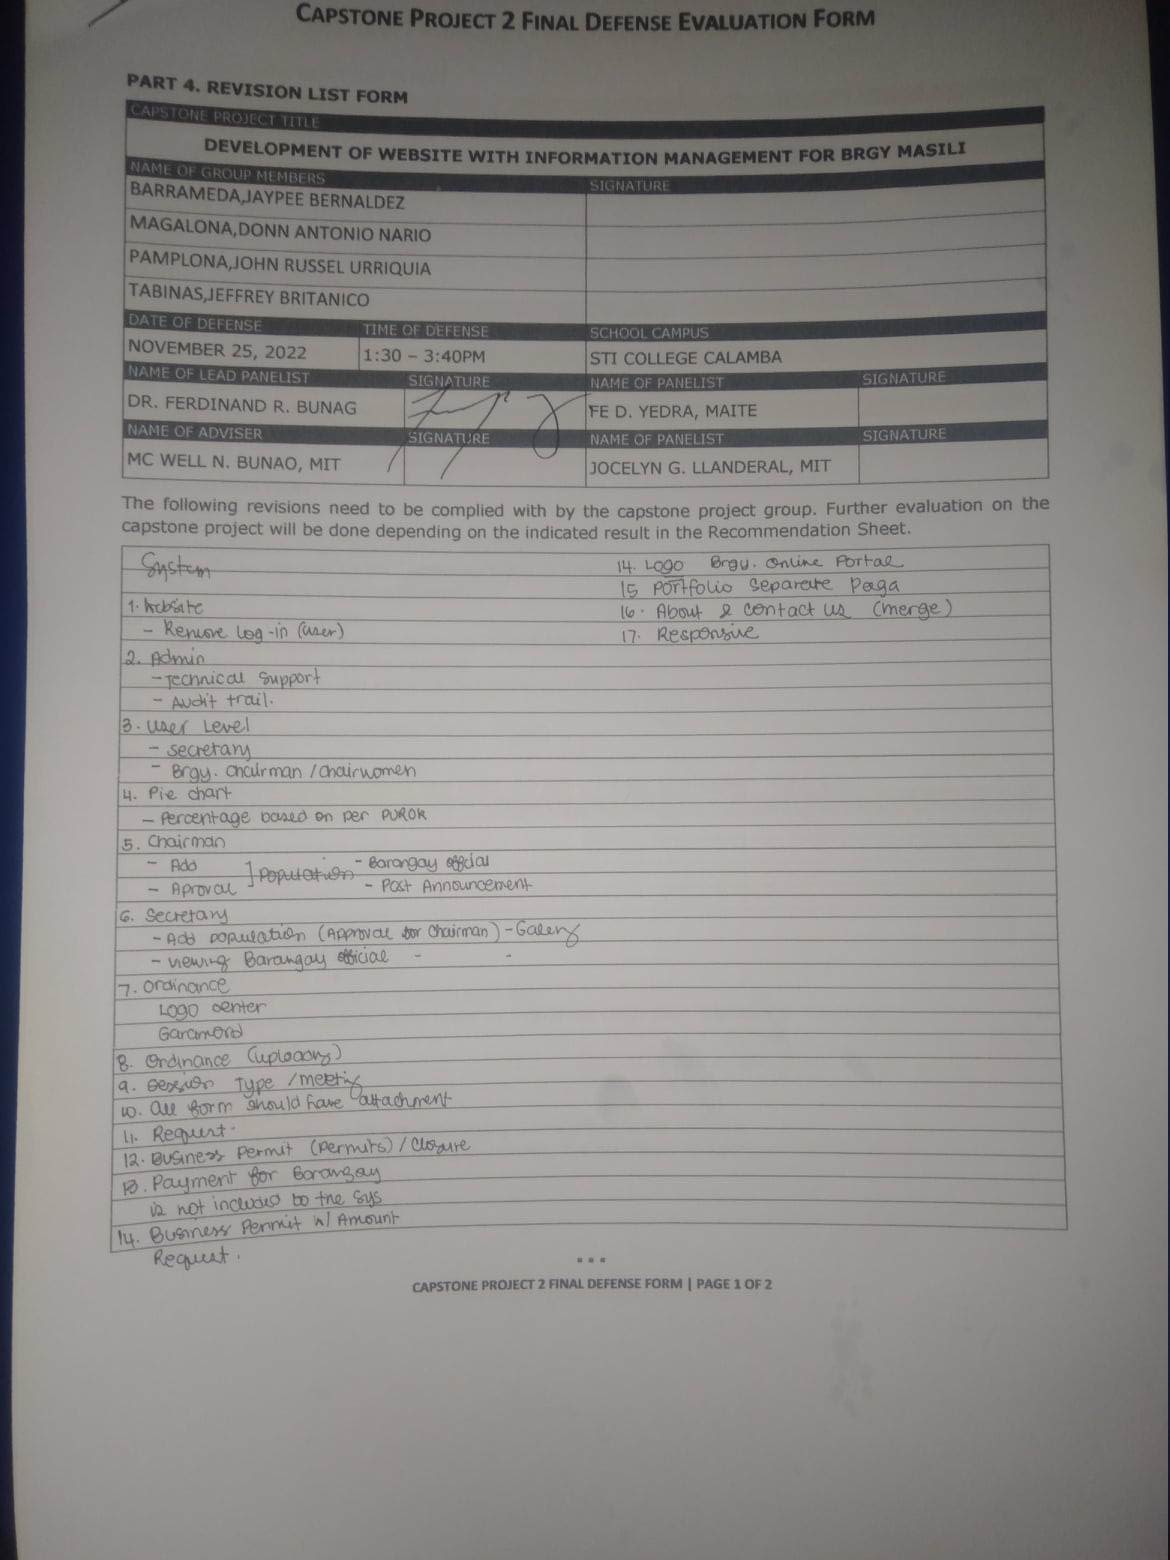 CAPSTONE PROJECT 2 FINAL DEFENSE EVALUATION FORM
PART 4. REVISION LIST FORM
CAPSTONE PROJECT TITLE
DEVELOPMENT OF WEBSITE WITH INFORMATION MANAGEMENT FOR BRGY MASILI
NAME OF GROUP MEMBERS SIGNATURE
BARRAMEDA,JAYPEE BERNALDEZ
MAGALONA,DONN ANTONIO NARIO
PAMPLONA,JOHN RUSSEL URRIQUIA
TABINAS,JEFFREY BRITANICO
DATE OF DEFENSE TIME OF DEFENSE SCHOOL CAMPUS
NOVEMBER 25, 2022 1:30 – 3:40PM STI COLLEGE CALAMBA
NAME OF LEAD PANELIST SIGNATURE NAME OF PANELIST SIGNATURE
DR. FERDINAND R. BUNAG FE D. YEDRA, MAITE
NAME OF ADVISER SIGNATURE NAME OF PANELIST SIGNATURE
MC WELL N. BUNAO, MIT JOCELYN G. LLANDERAL, MIT
The following revisions need to be complied with by the capstone project group. Further evaluation on the
capstone project will be done depending on the indicated result in the Recommendation Sheet.
System
1. Website
- Remove Log-in (user)
2. Admin
- Technical Support
- Audit trail.
3. User Level
- Secretary
- Brgy. Chairman / Chairwomen
4. Pie chart
- Percentage based on per PUROK
5. Chairman
- Add ] Population - Barangay official
- Aproval - Post Announcement
6. Secretary
- Add population (Approval for Chairman) - Galery
- viewing Barangay official - -
7. Ordinance
Logo center
Garamond
8. Ordinance (uploading)
9. Session Type / meeting
10. All form should have attachment
11. Request.
12. Business Permit (Permits) / Closure
13. Payment for Barangay
is not included to the sys
14. Business Permit w/ Amount
Request.
14. Logo Brgy. Online Portal
15 Portfolio Separate Paga
16. About & contact us (merge)
17. Responsive
▪ ▪ ▪
CAPSTONE PROJECT 2 FINAL DEFENSE FORM | PAGE 1 OF 2